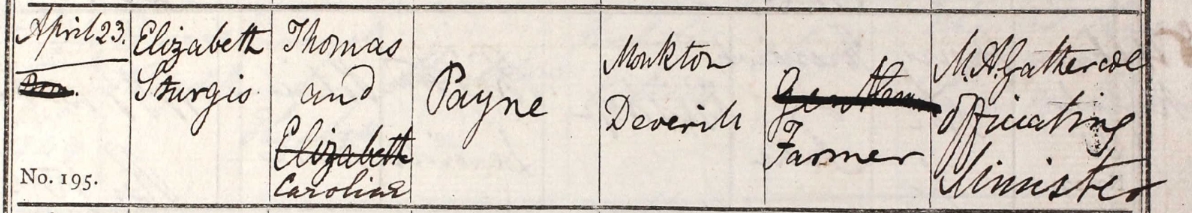 April 23.
No. 195.
Elizabeth
Sturgis
Thomas
and
Elizabeth
Caroline
Payne
Monkton
Deverill
Gentleman
Farmer
M. A. Gathercole
Officiating
Minister